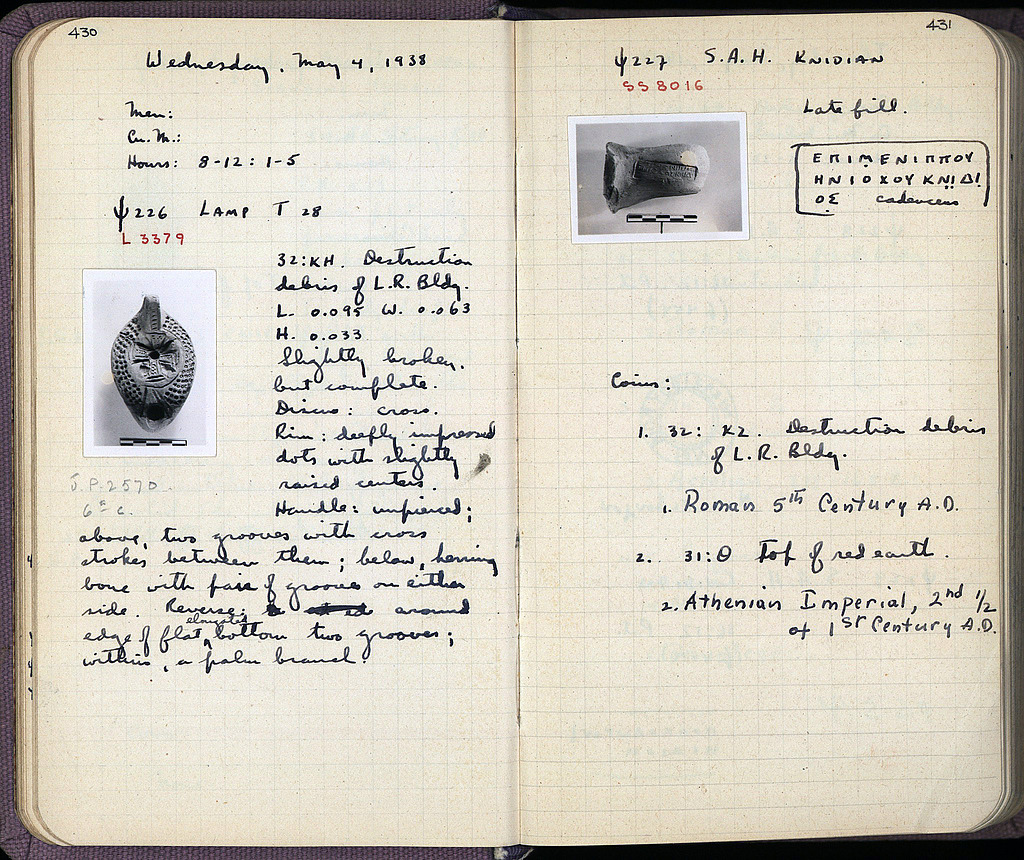 430
Wednesday, May 4, 1938
Men:
Cu. M.:
Hours: 8-12: 1-5
ψ226 LAMP T 28
L 3379
32:KH. Destruction
debris of L.R. Bldg.
L. 0.095 W. 0.063
H. 0.033
Slightly broken,
but complete.
Discus: cross.
Rim: deeply impressed
dots with slightly
raised centers.
Handle: unpierced;
above, two grooves with cross
strokes between them; below, herring
bone with pair of grooves on either
side. Reverse: around
edge of flat, elongated bottom two grooves;
within, a palm branch.
J.P. 2570.
6th c.
431
ψ227 S.A.H. KNIDIAN
SS 8016
Late fill.
ΕΠΙΜΕΝΙΠΠΟΥ
ΗΝΙΟΧΟΥ ΚΝΙΔΙ
ΟΣ caduceus
Coins:
1. 32: KZ. Destruction debris
of L.R. Bldg.
1. Roman 5th Century A.D.
2. 31:Θ Top of red earth.
2. Athenian Imperial, 2nd 1/2
of 1st Century A.D.